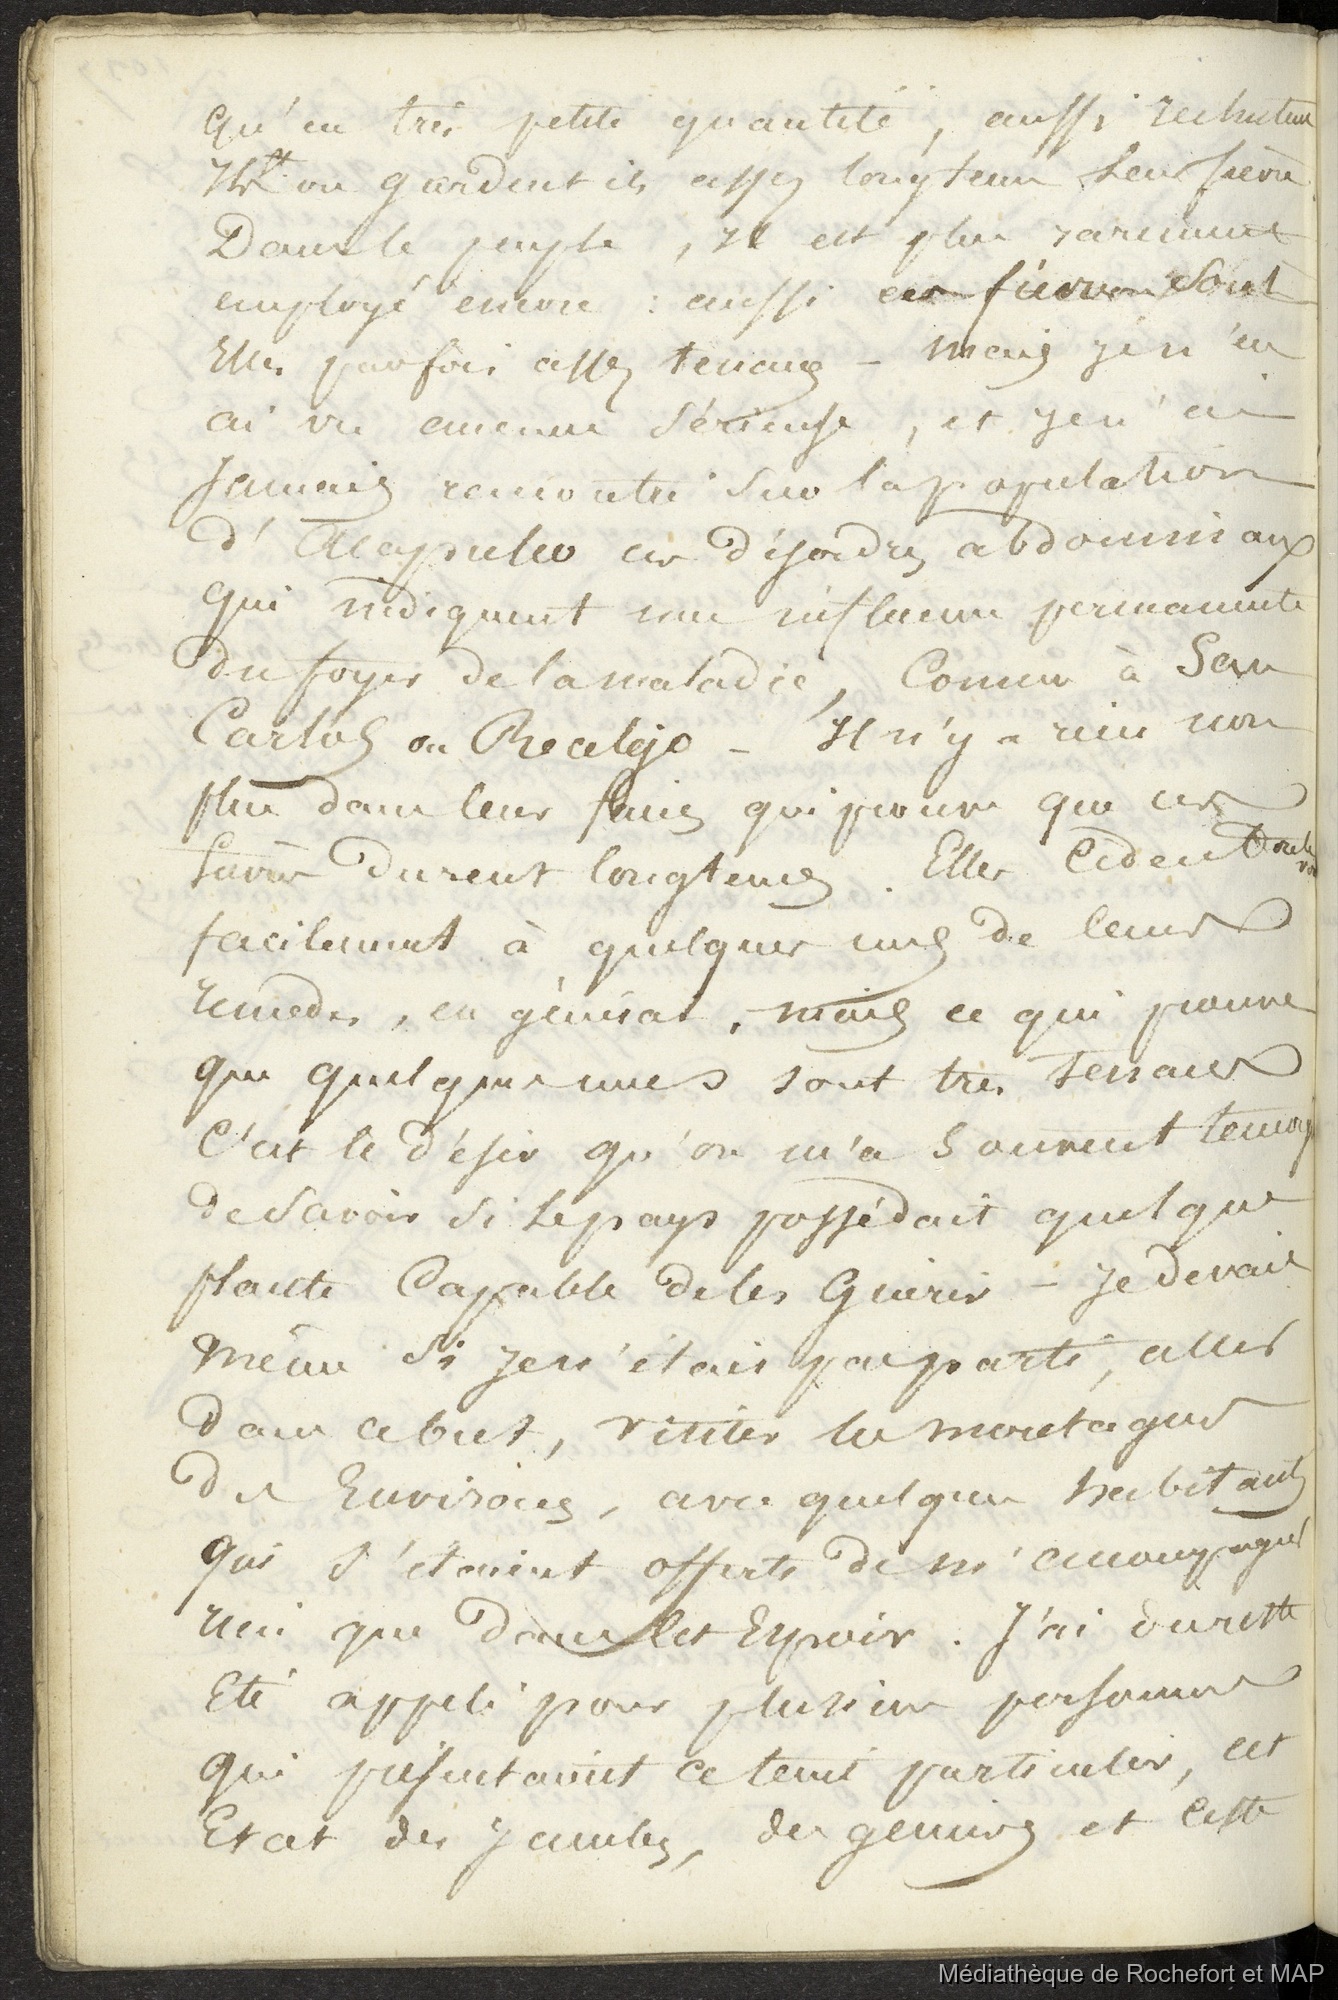 qu'en très petite quantité, aussi rechutent
ils ou gardent ils assez longtems leur fièvre
Dans le peuple, il est plus rarement
employé encore : aussi ces fièvres sont
Elles parfois assez tenaces – mais je n'en
ai vu aucune sérieuse, et je n'ai
jamais rencontré sur la population
d'Acapulco ces désordres abdominaux
qui indiquent une influence permanente
du foyer de la maladie, Comme à San
Carlos ou Realejo – Il n'y a rien non
plus dans leur facies qui prouve que ces
fièvres durent longtems. Elles Cèdent
facilement à quelques uns de leurs
remèdes, en général, mais ce qui prouve
que quelques unes sont très tenaces
C'est le désir qu'on m'a souvent temoigné
de savoir si le pays possédait quelque
plante Capable de les Guérir – Je devais
même si je n'étais pas parti, aller
dans ce but, visiter les montagnes
des Environs, avec quelques habitants
qui s'étaient offerts de m'accompagner
rien que dans cet Espoir. J'ai du reste
Eté appelé pour plusieurs personnes
qui présentaient ce teint particulier, cet
Etat des jambes, des gencives et cette
Médiathèque de Rochefort et MAP